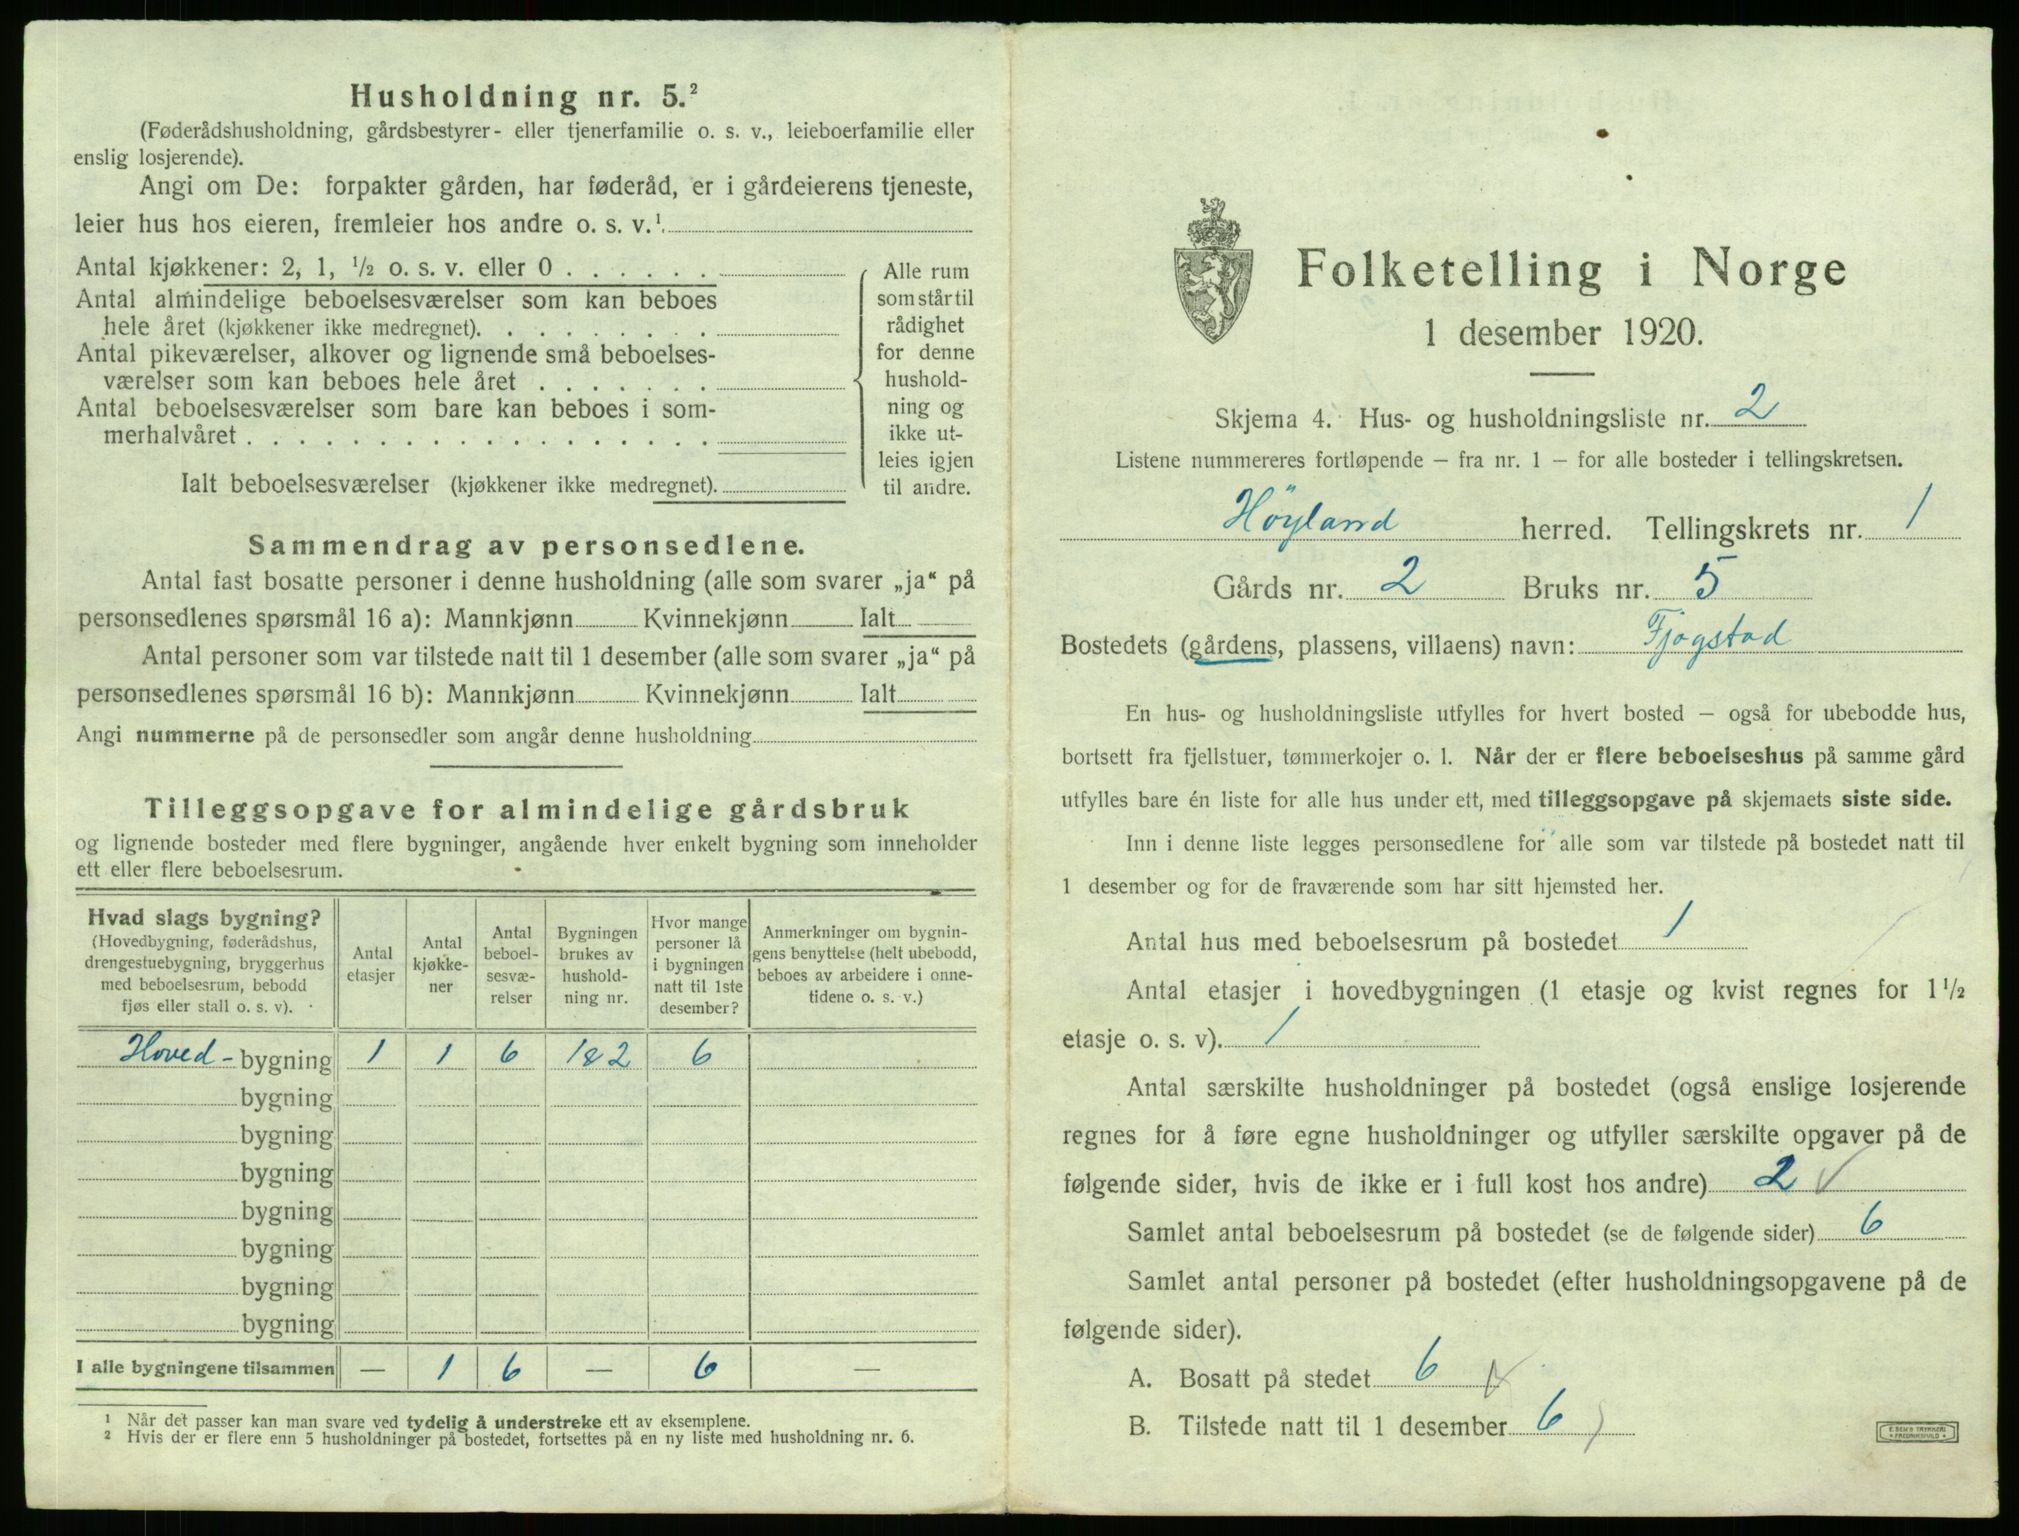 Husholdning nr. 5.²
(Føderådshusholdning, gårdsbestyrer- eller tjenerfamilie o. s. v., leieboerfamilie eller
enslig losjerende).
Angi om De: forpakter gården, har føderåd, er i gårdeierens tjeneste,
leier hus hos eieren, fremleier hos andre o. s. v.¹
Antal kjøkkener: 2, 1, ½ o. s. v. eller 0 . . . . . .
Antal almindelige beboelsesværelser som kan beboes
hele året (kjøkkener ikke medregnet). . . . . . . . .
Antal pikeværelser, alkover og lignende små beboelses-
værelser som kan beboes hele året . . . . . . .
Antal beboelsesværelser som bare kan beboes i som-
merhalvåret . . . . . . . . . . . . . . . . . .
Ialt beboelsesværelser (kjøkkener ikke medregnet).
Alle rum
som står til
rådighet
for denne
hushold-
ning og
ikke ut-
leies igjen
til andre.
Sammendrag av personsedlene.
Antal fast bosatte personer i denne husholdning (alle som svarer „ja“ på
personsedlenes spørsmål 16 a): Mannkjønn Kvinnekjønn Ialt
Antal personer som var tilstede natt til 1 desember (alle som svarer „ja“ på
personsedlenes spørsmål 16 b): Mannkjønn Kvinnekjønn Ialt
Angi nummerne på de personsedler som angår denne husholdning
Tilleggsopgave for almindelige gårdsbruk
og lignende bosteder med flere bygninger, angående hver enkelt bygning som inneholder
ett eller flere beboelsesrum.
Hvad slags bygning?
(Hovedbygning, føderådshus,
drengestuebygning, bryggerhus
med beboelsesrum, bebodd
fjøs eller stall o. s. v).
Antal
etasjer
Antal
kjøkke-
ner
Antal
beboel-
sesvæ-
relser
Bygningen
brukes av
hushold-
ning nr.
Hvor mange
personer lå
i bygningen
natt til 1ste
desember?
Anmerkninger om bygnin-
gens benyttelse (helt ubebodd,
beboes av arbeidere i onne-
tidene o. s. v.)
Hoved- bygning 1 1 6 1&2 6
bygning
bygning
bygning
bygning
bygning
bygning
bygning
I alle bygningene tilsammen — 1 6 — 6 —
¹ Når det passer kan man svare ved tydelig å understreke ett av eksemplene.
² Hvis der er flere enn 5 husholdninger på bostedet, fortsettes på en ny liste med husholdning nr. 6.
Folketelling i Norge
1 desember 1920.
Skjema 4. Hus- og husholdningsliste nr. 2
Listene nummereres fortløpende — fra nr. 1 — for alle bosteder i tellingskretsen.
Höyland herred. Tellingskrets nr. 1
Gårds nr. 2 Bruks nr. 5
Bostedets (gårdens, plassens, villaens) navn: Fjogstad
En hus- og husholdningsliste utfylles for hvert bosted — også for ubebodde hus,
bortsett fra fjellstuer, tømmerkojer o. l. Når der er flere beboelseshus på samme gård
utfylles bare én liste for alle hus under ett, med tilleggsopgave på skjemaets siste side.
Inn i denne liste legges personsedlene for alle som var tilstede på bostedet natt til
1 desember og for de fraværende som har sitt hjemsted her.
Antal hus med beboelsesrum på bostedet 1
Antal etasjer i hovedbygningen (1 etasje og kvist regnes for 1½
etasje o. s. v). 1
Antal særskilte husholdninger på bostedet (også enslige losjerende
regnes for å føre egne husholdninger og utfyller særskilte opgaver på de
følgende sider, hvis de ikke er i full kost hos andre) 2 ✓
Samlet antal beboelsesrum på bostedet (se de følgende sider) 6
Samlet antal personer på bostedet (efter husholdningsopgavene på de
følgende sider).
A. Bosatt på stedet 6
B. Tilstede natt til 1 desember 6